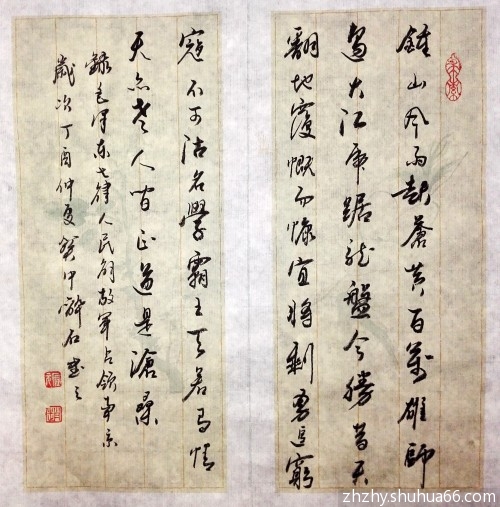 鍾山风雨起蒼黄百萬雄師
過大江虎踞龙盤今勝昔天
翻地覆慨而慷宜將剩勇追窮
寇不可沽名學霸王天若有情
天亦老人间正道是滄桑
錄毛泽东七律人民解放軍占领南京
歲次丁酉仲夏 醉石書之
zhzhy.shuhua66.com